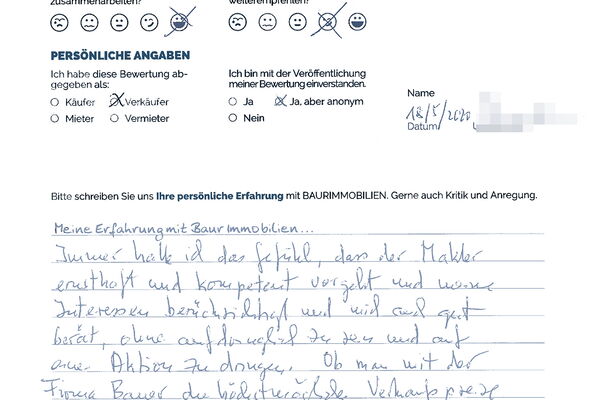 zusammenarbeiten?
weiterempfehlen?
PERSÖNLICHE ANGABEN
Ich habe diese Bewertung ab-
gegeben als:
Käufer Verkäufer
Mieter Vermieter
Ich bin mit der Veröffentlichung
meiner Bewertung einverstanden.
Ja Ja, aber anonym
Nein
Name
18/5/2020
Datum
Bitte schreiben Sie uns Ihre persönliche Erfahrung mit BAURIMMOBILIEN. Gerne auch Kritik und Anregung.
Meine Erfahrung mit Baur Immobilien...
Immer hatte ich das Gefühl, dass der Makler
ernsthaft und kompetent vorgeht und meine
Interessen berücksichtigt und mich auch gut
berät, ohne aufdringlich zu sein und auf
eine Aktion zu drängen. Ob man mit der
Firma Bauer die höchstmöglichen Verkaufspreise